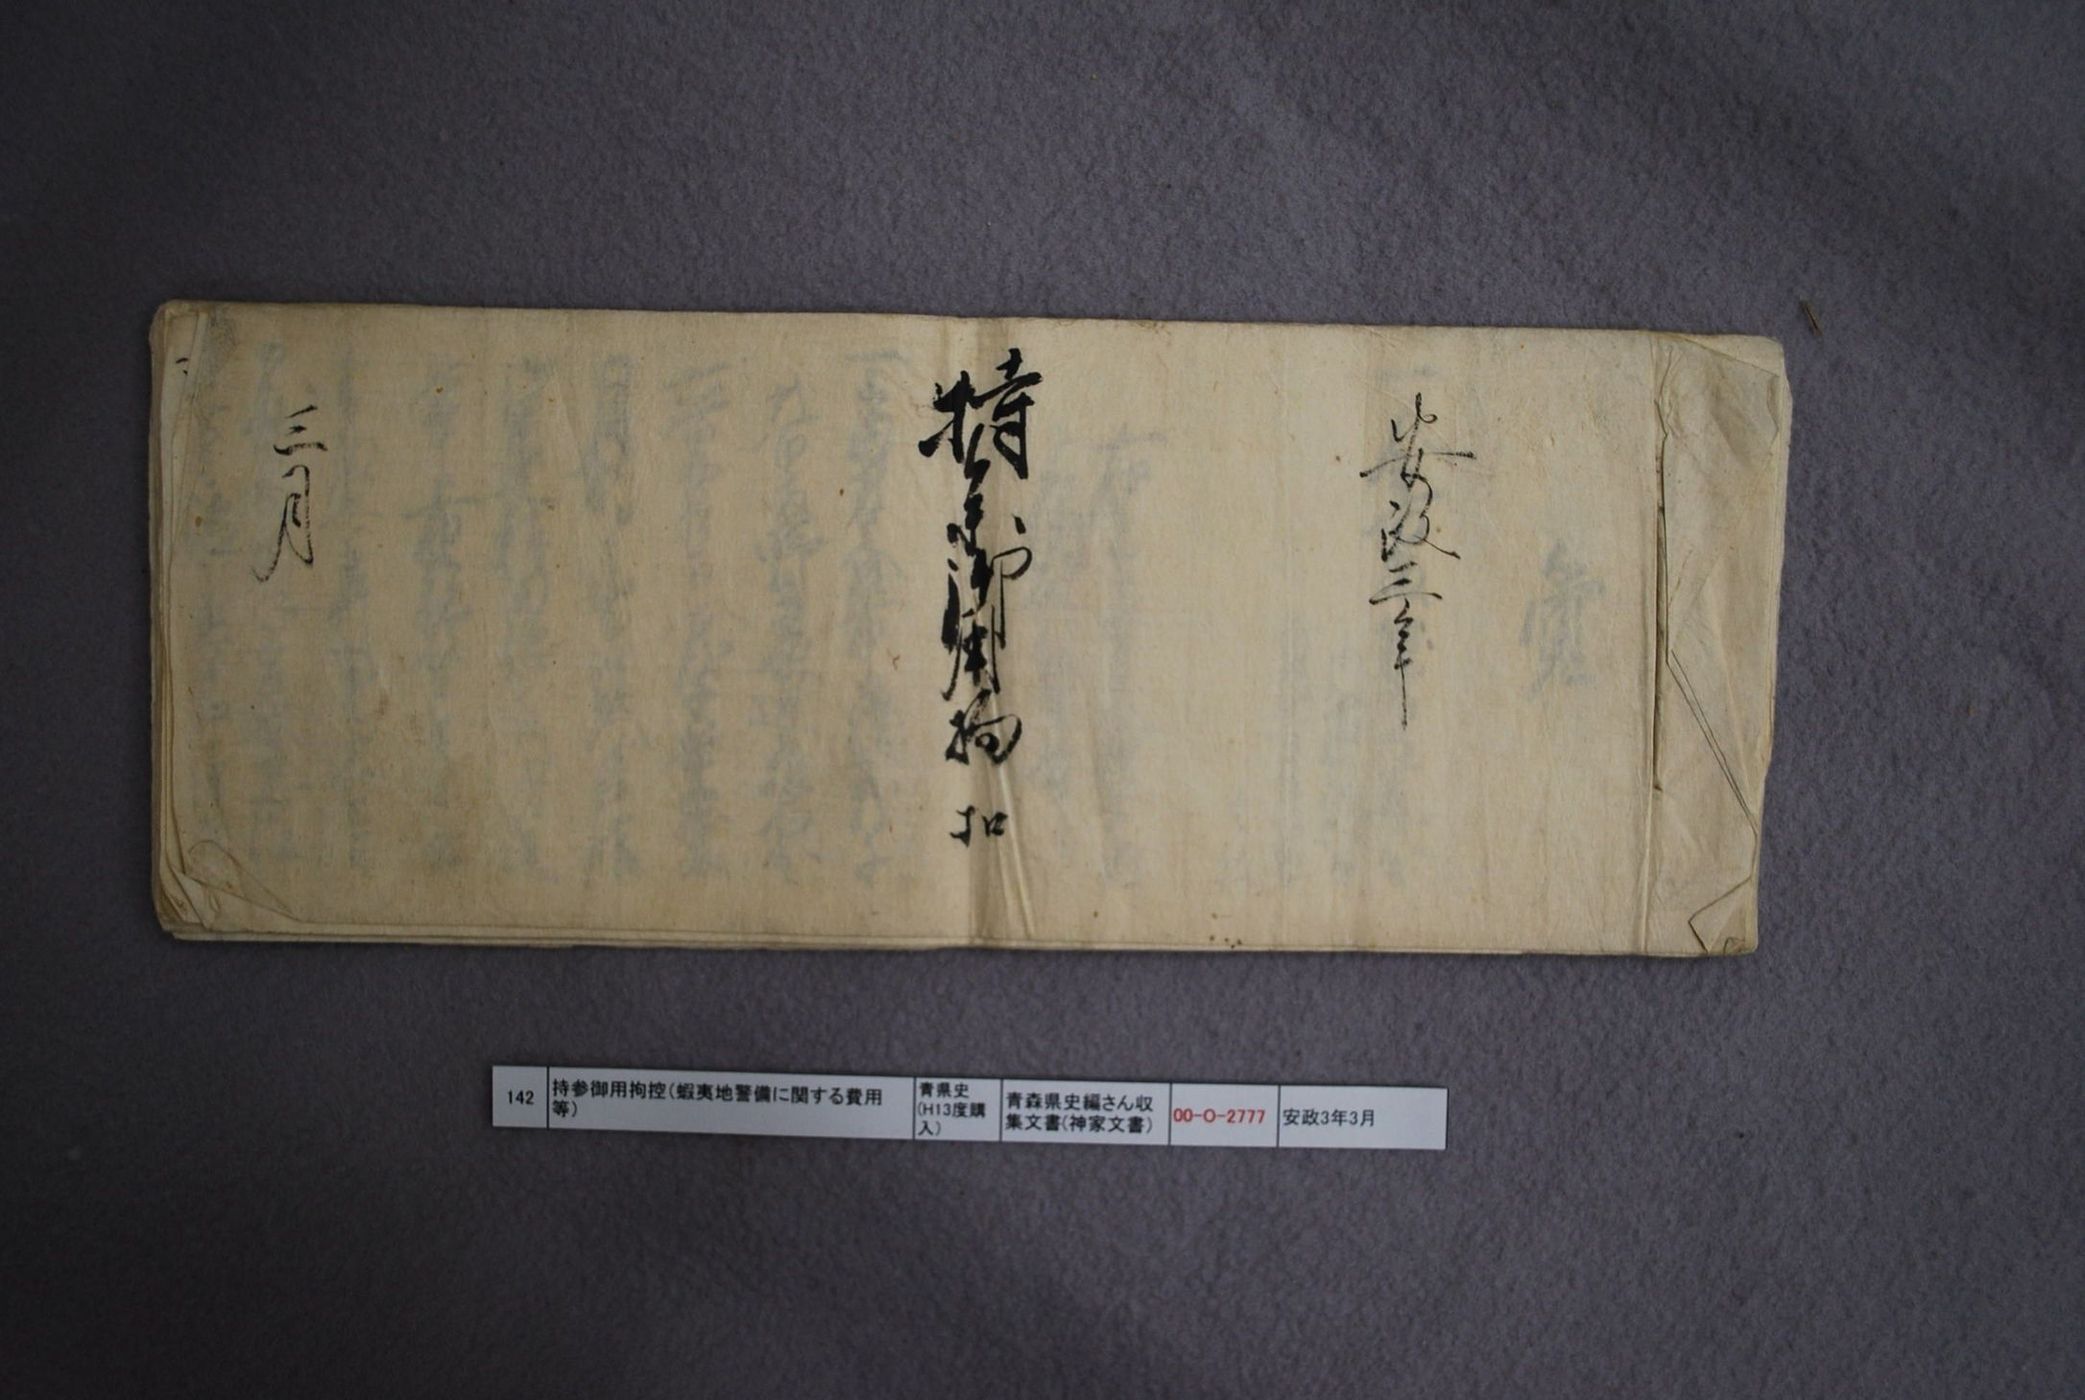 安政三年
持参御用拘
扣
三月
142
持参御用拘控(蝦夷地警備に関する費用
等)
青県史
(H13度購
入)
青森県史編さん収
集文書(神家文書)
00-O-2777
安政3年3月